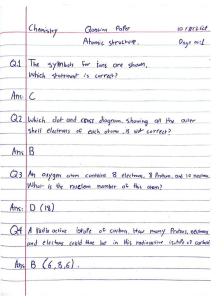 Chemistry Question Paper
Atomic structure. Page no:1
Q.1 The symbols for ions are shown,
which statement is correct?
Ans: C
Q.2 Which dot and cross diagram, showing all the outer
shell electrons of each atom, is not correct?
Ans B
Q.3 An oxygen atom contains 8 electrons, 8 Protons and 10 neutrons
What is the nucleon number of this atom?
Ans: D (18)
Q.4 A Radio active isotope of carbon. How many Protons, neutrons
and electrons could there be in this radioactive isotope of carbon?
Ans: B (6,8,6).